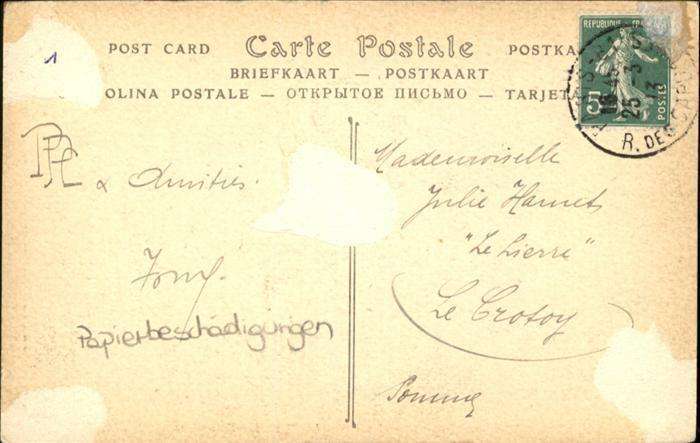 1
POST CARD Carte Postale POSTKA
BRIEFKAART — POSTKAART
OLINA POSTALE — ОТКРЫТОЕ ПИСЬМО — TARJETA
REPUBLIQUE FRA
5
POSTES
R. DES
25
13
& Amitiés.
Papierbeschädigungen
Mademoiselle
Julie Hamet
"Le Lierre"
Le Crotoy
Somme